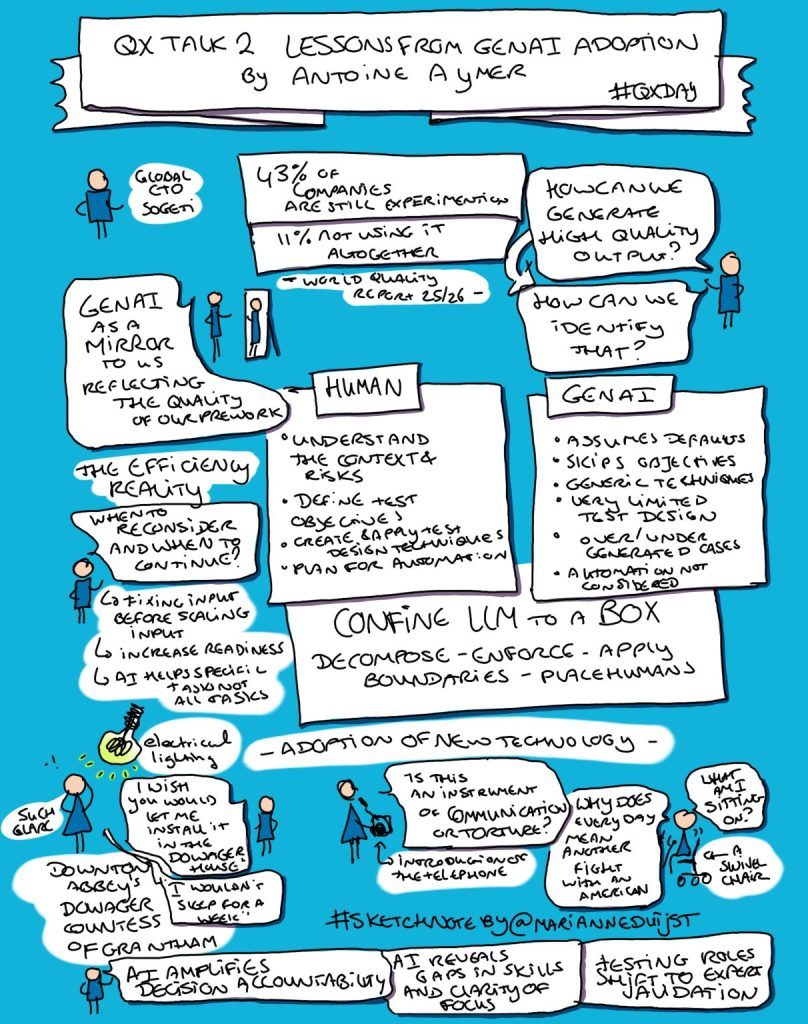 QX TALK 2 LESSONS FROM GENAI ADOPTION
by ANTOINE AYMER
#QXDAY
GLOBAL
CTO
SOGETI
43% OF
COMPANIES
ARE STILL EXPERIMENTION
11% NOT USING IT
ALTOGETHER
- WORLD QUALITY
REPORT 25/26 -
HOW CAN WE
GENERATE
HIGH QUALITY
OUTPUT?
HOW CAN WE
IDENTIFY
THAT?
GENAI
AS A
MIRROR
TO US
REFLECTING
THE QUALITY
OF OUR PREWORK
HUMAN
• UNDERSTAND
THE CONTEXT &
RISKS
• DEFINE TEST
OBJECTIVES
• CREATE & APPLY TEST
DESIGN TECHNIQUES
• PLAN FOR AUTOMATION
GENAI
• ASSUMES DEFAULTS
• SKIPS OBJECTIVES
• GENERIC TECHNIQUES
• VERY LIMITED
TEST DESIGN
• OVER/UNDER
GENERATED CASES
• AUTOMATION NOT
CONSIDERED
THE EFFICIENCY
REALITY
WHEN TO
RECONSIDER
AND WHEN TO
CONTINUE?
↳ FIXING INPUT
BEFORE SCALING
INPUT
↳ INCREASE READINESS
↳ AI HELPS SPECIFIC
TASKS NOT
ALL TASKS
CONFINE LLM TO A BOX
DECOMPOSE - ENFORCE - APPLY
BOUNDARIES - PLACE HUMANS
electrical
lighting
- ADOPTION OF NEW TECHNOLOGY -
..!
SUCH
GLARE
I WISH
YOU WOULD
LET ME
INSTALL IT
IN THE
DOWAGER
HOUSE!
I WOULDN'T
SLEEP FOR A
WEEK!!
DOWNTON
ABBEY'S
DOWAGER
COUNTESS
OF GRANTHAM
IS THIS
AN INSTRUMENT
OF COMMUNICATION
OR TORTURE?
↳ INTRODUCTION OF
THE TELEPHONE
WHY DOES
EVERY DAY
MEAN
ANOTHER
FIGHT
WITH AN
AMERICAN
WHAT
AM I
SITTING
ON?
A
SWIVEL
CHAIR
#SKETCHNOTE BY @MARIANNEDUIJST
AI AMPLIFIES
DECISION ACCOUNTABILITY
AI REVEALS
GAPS IN SKILLS
AND CLARITY OF
FOCUS
TESTING ROLES
SHIFT TO EXPERT
VALIDATION